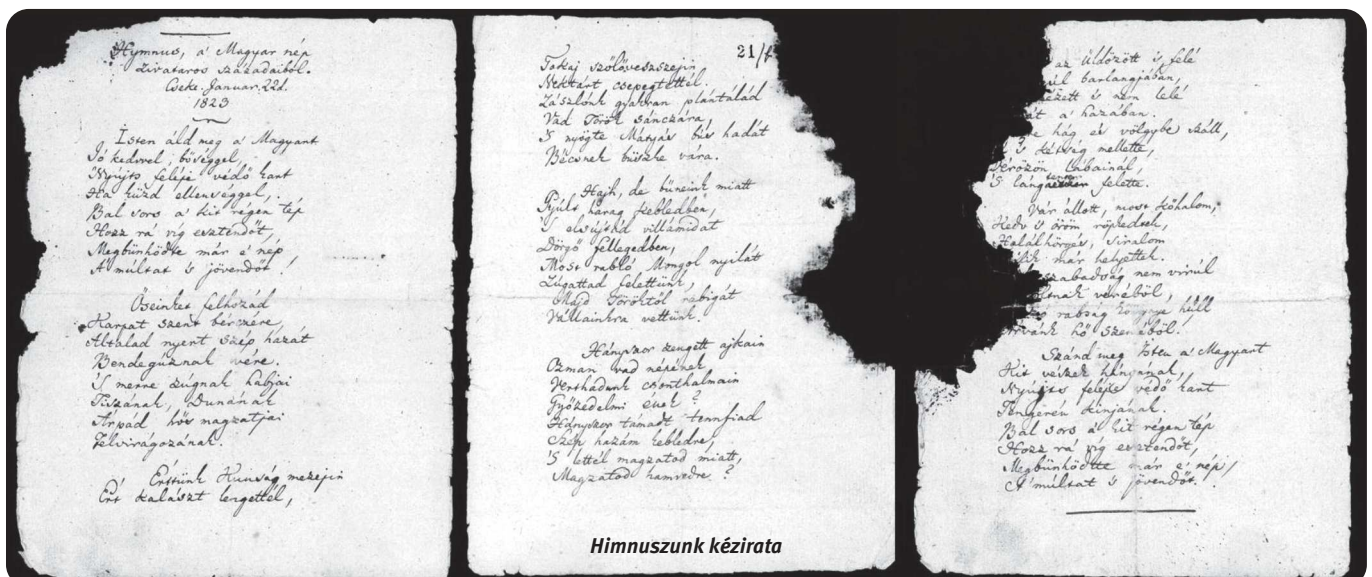 Hymnus, a' Magyar nép
zivataros századaiból.
Cseke Januar. 22d.
1823
Isten áld meg a' Magyart
Jó kedvvel, bőséggel,
Nyújts feléje védő kart
Ha küzd ellenséggel,
Bal sors a' kit régen tép
Hozz rá víg esztendőt,
Megbűnhödte már e' nép
A' múltat 's jövendőt!
Őseinket felhozád
Kárpát szent bérczére,
Általad nyert szép hazát
Bendegúznak vére.
'S merre zúgnak habjai
Tiszának, Dunának
Árpád hős magzatjai
Felvirágozának.
Értünk Kunság mezejin
Ért kalászt lengettél,
21/
Tokaj szőlővesszejin
Nektárt csepegtettél.
Zászlónk gyakran plántálád
Vad Török sánczára,
'S nyögte Mátyás bús hadát
Bécsnek büszke vára.
Hajh, de bűneink miatt
Gyúlt harag kebledben,
'S elsújtád villámidat
Dörgő fellegedben,
Most rabló Mongol nyilát
Zúgattad felettünk,
Majd Töröktől rabigát
Vállainkra vettünk.
Hányszor zengett ajkain
Ozman vad népének
Vert hadunk csonthalmain
Győzedelmi ének?
Hányszor támadt tennfiad
Szép hazám kebledre,
'S lettél magzatod miatt,
Magzatod hamvedre?
az üldözött 's felé
barlangjában,
nézett 's nem lelé
a' hazában.
hág és völgybe száll,
's kétség mellette,
Vérözön lábainál,
'S lángtenger felette.
Vár állott, most kőhalom,
Kedv 's öröm röpkedtek,
Halálhörgés, siralom
már helyettek.
szabadság nem virúl
véréből,
rabság könnye hűll
hő szeméből!
Szánd meg Isten a' Magyart
Kit vészek hányának,
Nyújts feléje védő kart
Tengerén kínjának.
Bal sors a' kit régen tép
Hozz rá víg esztendőt,
Megbűnhödte már e' nép
A' múltat 's jövendőt!
Himnuszunk kézirata